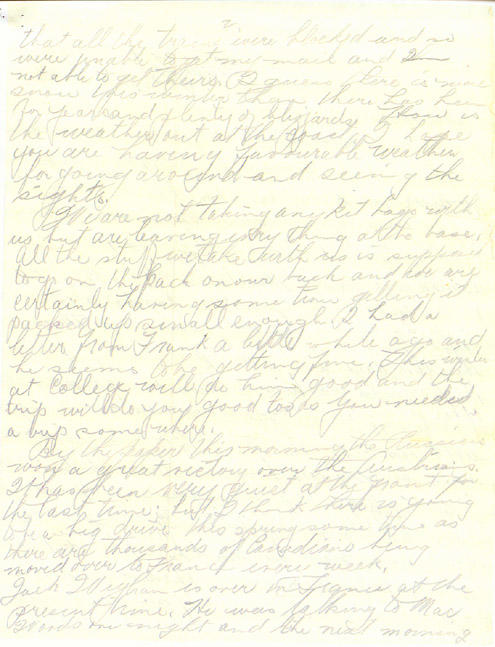 2
that all the trains were blocked and so
were unable to get my mail and
not able to get theirs. I guess there is more
snow this winter than there has been
for years and plenty of blizzards. How is
the weather out at the coast. I hope
you are having favourable weather
for going around and seeing the
sights.
We are not taking any kit bags with
us but are leaving every thing at the base.
All the stuff we take with us is suppose
to go on the pack on our back and we are
certainly having some time getting it
packed up small enough. I had a
letter from Frank a little while ago and
he seems to be getting fine. This winter
at College will do him good and the
trip will do you good too as you needed
a trip some where.
By the paper this morning the Russians
won a great victory over the Austrians.
It has been very quiet at the front for
the last time; but I think there is going
to be a big drive this spring some time as
there are thousands of Canadians being
moved over to France every week.
Jack is over in France at the
present time. He was talking to Mac
Woods one night and the next morning